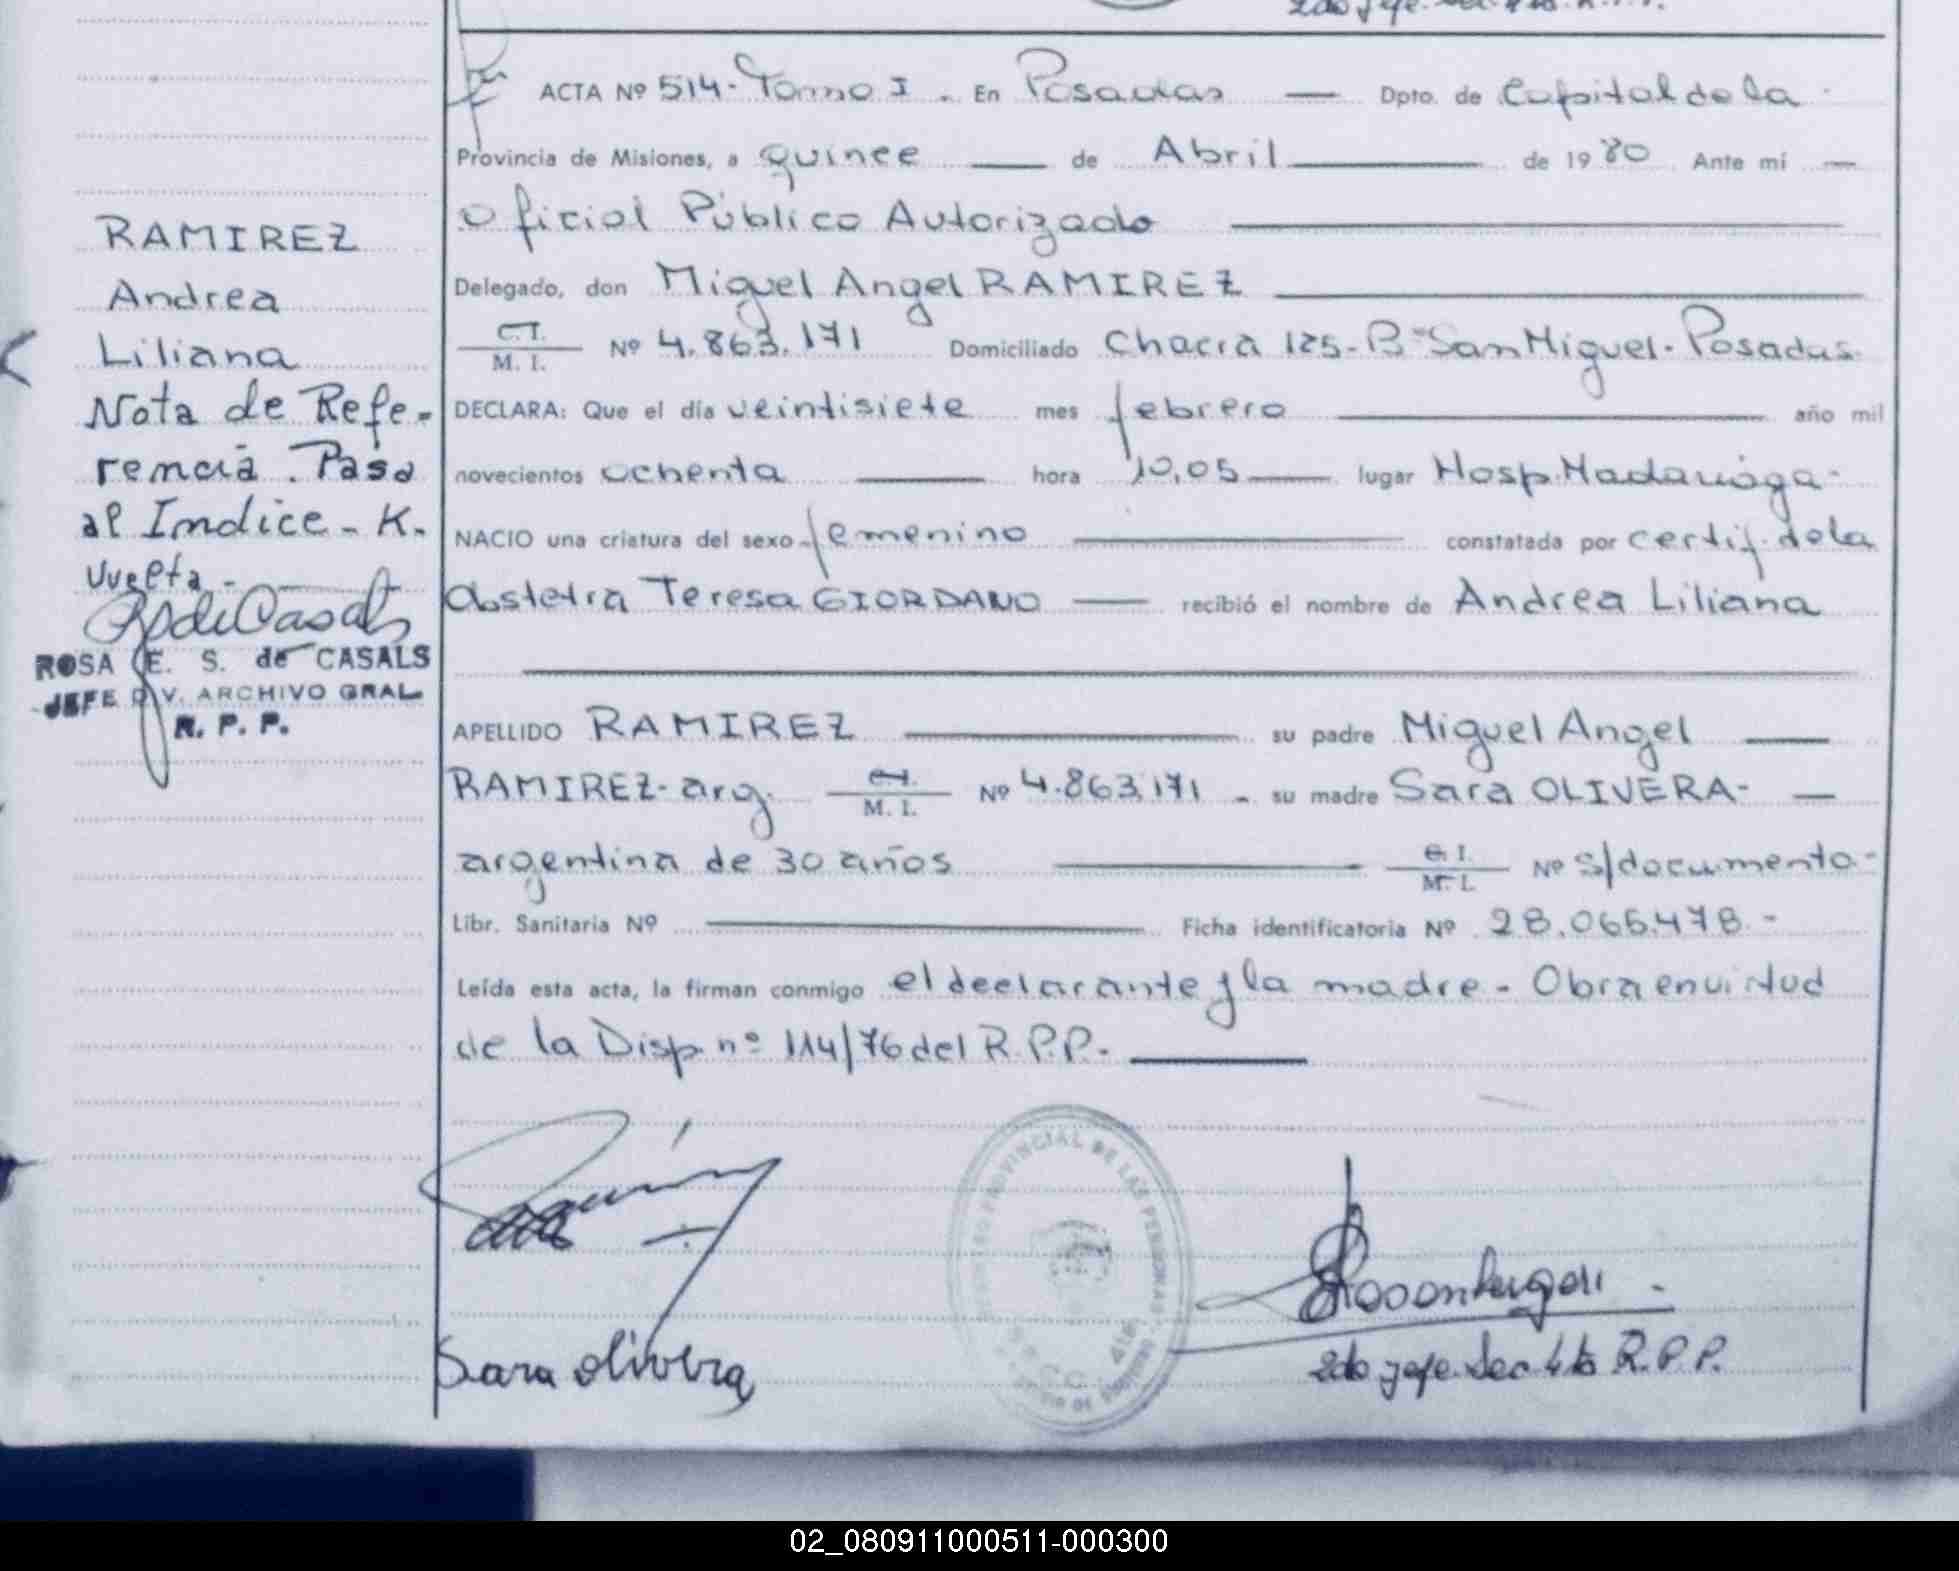 2do Jefe. Sec. 4to. R.P.P.
ACTA Nº 514- Tomo I. En Posadas — Dpto. de Capital de la
Provincia de Misiones, a quince — de Abril — de 1980 Ante mí —
Oficial Público Autorizado
Delegado, don Miguel Angel RAMIREZ
C.I.
M. I. Nº 4.863.171 Domiciliado Chacra 125-Bº San Miguel. Posadas.
DECLARA: Que el día veintisiete mes febrero — año mil
novecientos ochenta — hora 10,05 — lugar Hosp. Madariaga-
NACIO una criatura del sexo femenino — constatada por certif. de la
obstetra Teresa GIORDANO — recibió el nombre de Andrea Liliana
APELLIDO RAMIREZ — su padre Miguel Angel —
RAMIREZ- arg. C.I.
M. I. Nº 4.863.171 - su madre Sara OLIVERA- —
argentina de 30 años — C.I.
M. I. Nº S/documento-
Libr. Sanitaria Nº — Ficha identificatoria Nº 28.065.478.-
Leída esta acta, la firman conmigo el declarante y la madre - Obra en virtud
de la Disp. nº 114/76 del R.P.P.-
RAMIREZ
Andrea
Liliana
Nota de Refe-
rencia. Pasa
al Indice - K.
vuelta -
ROSA E. S. de CASALS
JEFE DIV. ARCHIVO GRAL
R. P. P.
Sara olivera
REGISTRO PROVINCIAL DE LAS PERSONAS
2do Jefe. Sec 4to R.P.P.
02_080911000511-000300